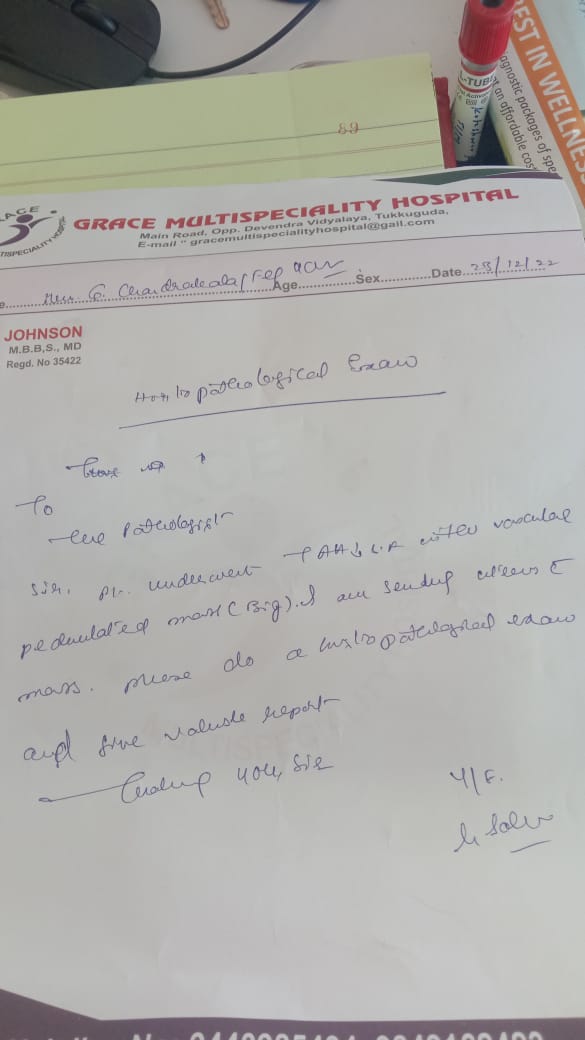 89
L-TUBE
BEST IN WELLNESS
agnostic packages of spe
at an affordable cost
ACE
TISPECIALITY HOSPITAL
GRACE MULTISPECIALITY HOSPITAL
Main Road, Opp. Devendra Vidyalaya, Tukkuguda,
E-mail " gracemultispecialityhospital@gail.com
e. G. Chandrakala / Age Sex Date 23/12/22
JOHNSON
M.B.B,S., MD
Regd. No 35422
Histopathological Exam
To
The Pathologist
Sir, Pt. underwent TAH with vascular
pedunculated mass (Big). I am sending uterus c̄
mass. please do a histopathological exam
and give report
Thanking you, Sir
Y/F.